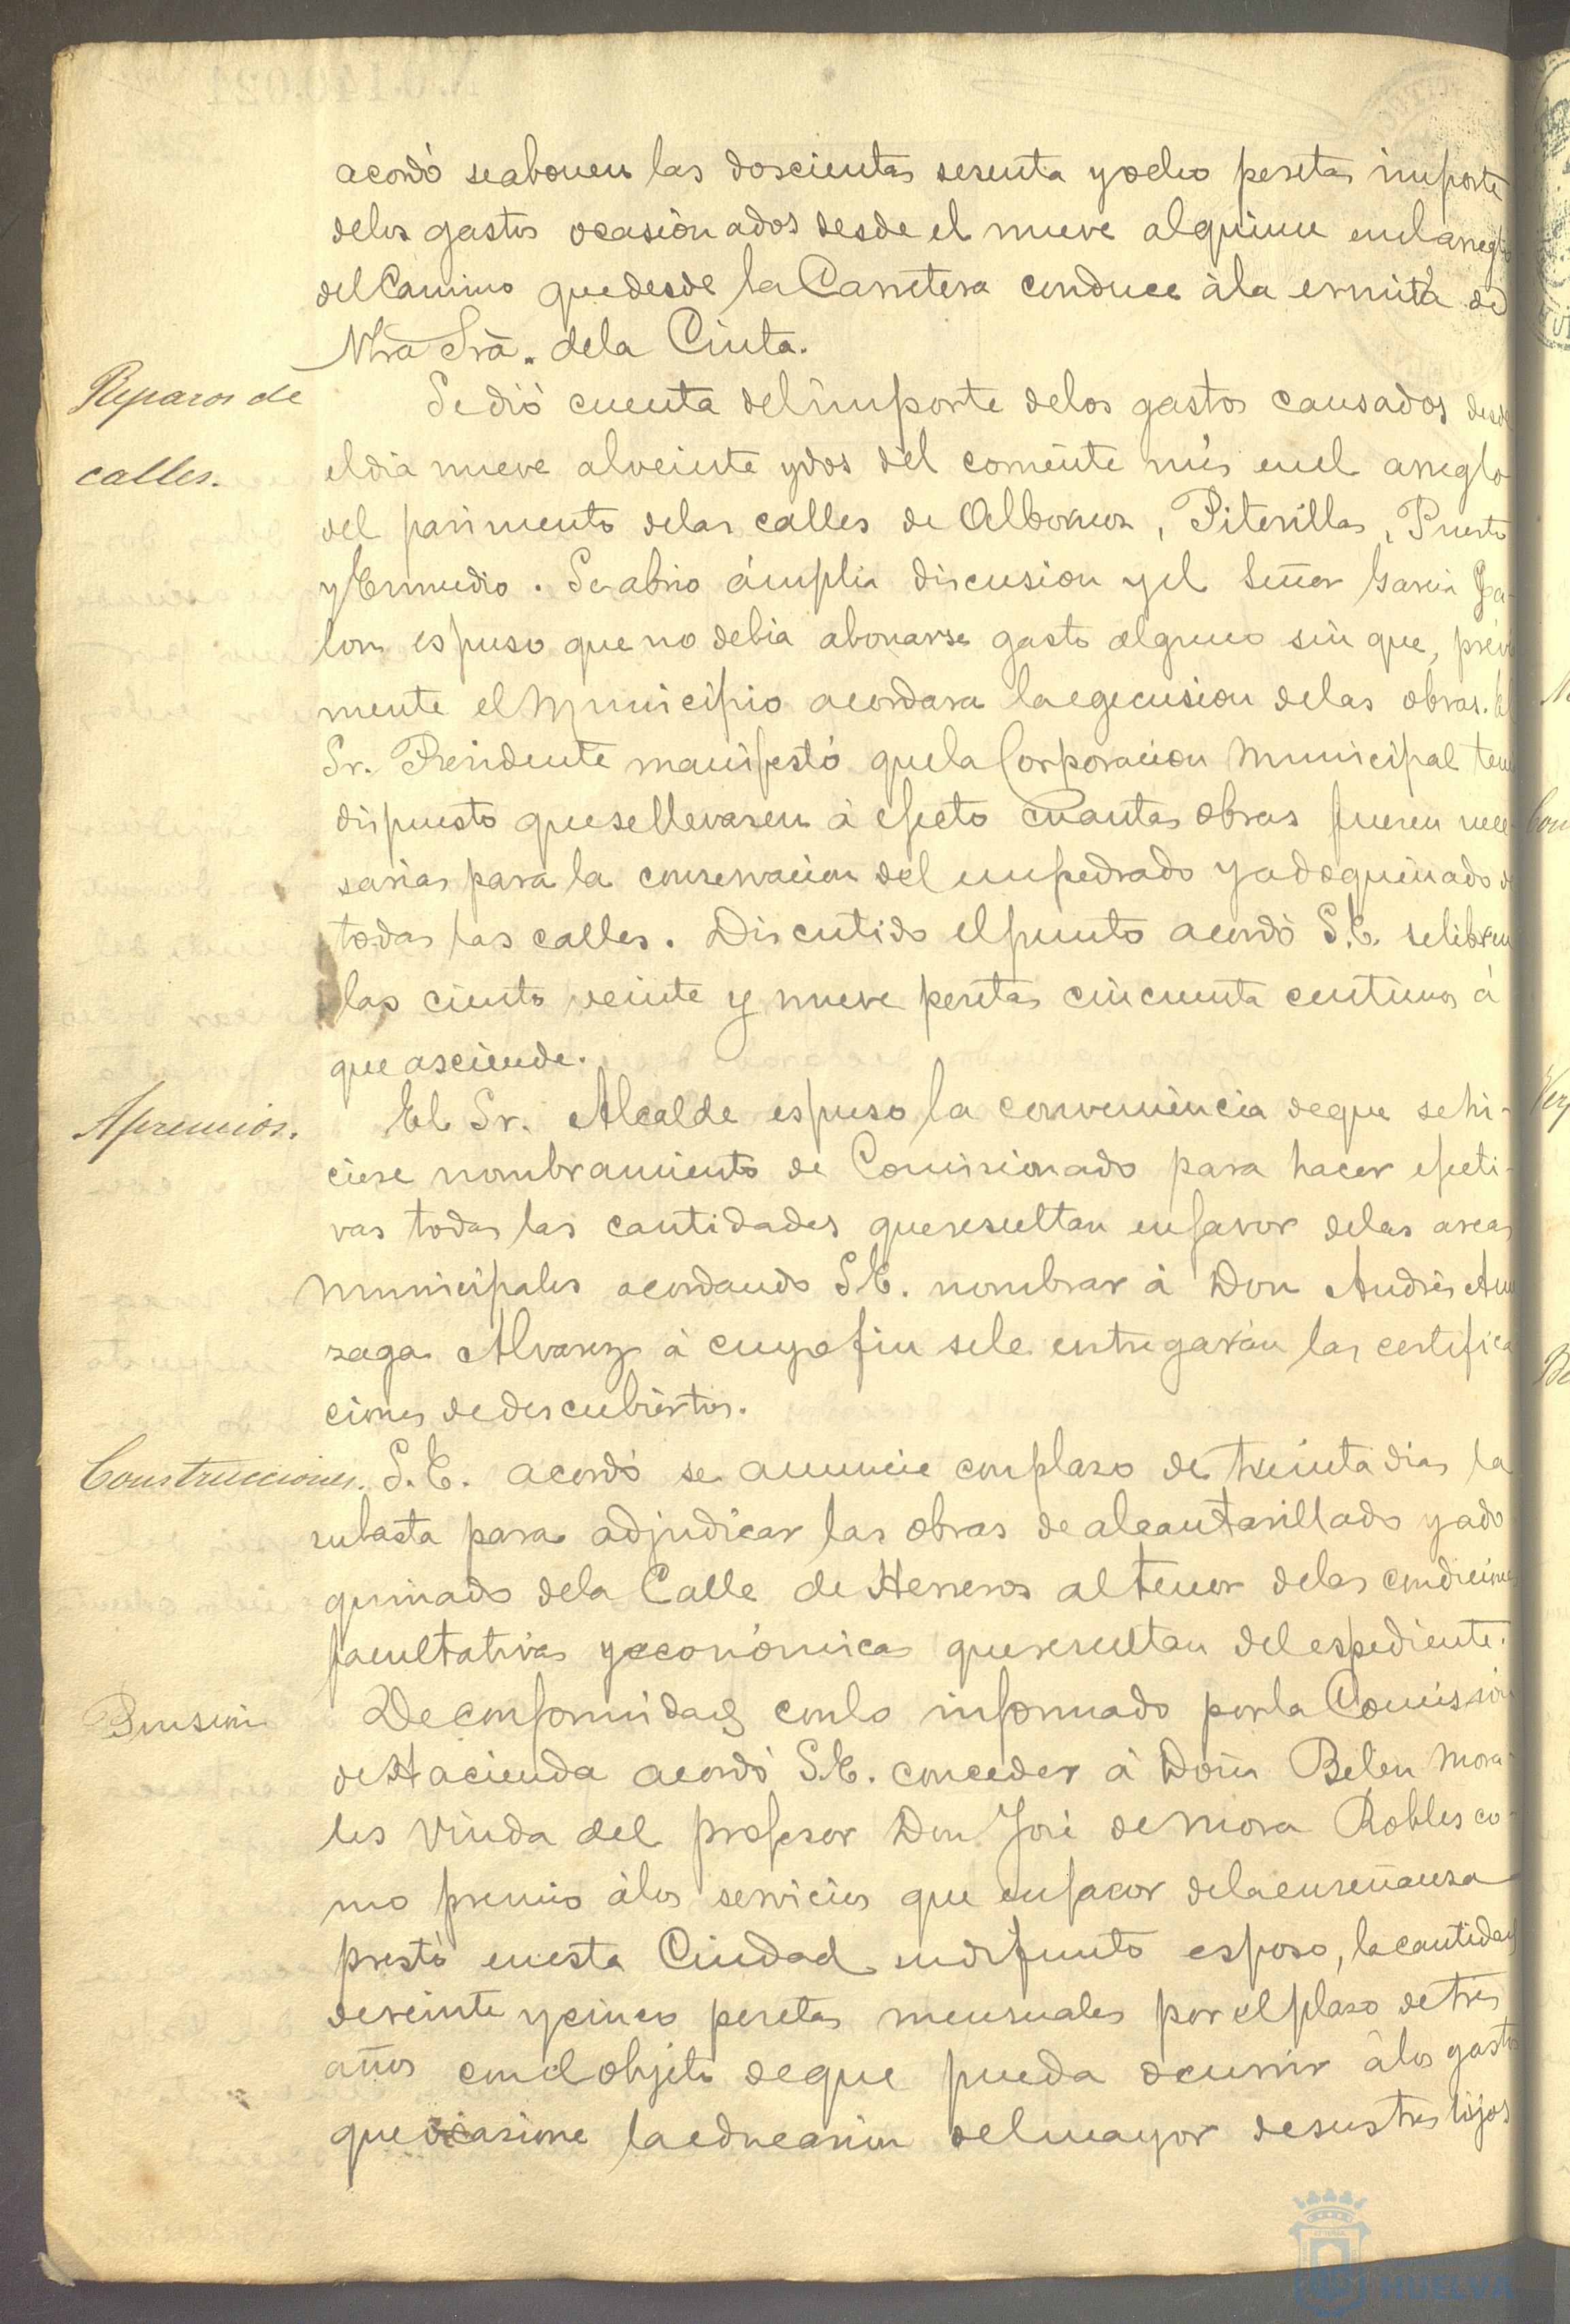 acordó se abonen las doscientas sesenta y ocho pesetas importe
de los gastos ocasionados desde el nueve al quince en el arreglo
del Camino que desde la Carretera conduce á la ermita de
Ntra Sra. de la Cinta.
Reparos de
calles.
Se dió cuenta del importe de los gastos causados desde
el dia nueve al veinte y dos del corriente mes en el arreglo
del pavimento de las calles de Albornoz, Piterilla, Puerto
y Enmedio. Se abrio ámplia discusion y el Señor Garcia
espuso que no debia abonarse gasto alguno sin que, prévia
mente el Municipio acordara la egecusion de las obras. El
Sr. Presidente manifestó que la Corporacion Municipal tenia
dispuesto que se llevasen á efecto cuantas obras fueren nece-
sarias para la conservacion del empedrado y adoquinado de
todas las calles. Discutido el punto acordó S.E. se libren
las ciento veinte y nueve pesetas cincuenta centimos á
que asciende.
Apremios.
El Sr. Alcalde espuso la conveniencia de que se hi-
ciese nombramiento de Comisionado para hacer efecti-
vas todas las cantidades que resultan en favor de las arcas
Municipales acordando S.E. nombrar á Don Andrés
Alvarez á cuyo fin se le entregarán las certifica
ciones de descubiertos.
Construcciones.
S.E. acordó se anuncie con plazo de treinta dias la
subasta para adjudicar las obras de alcantarillado y ado
quinado de la Calle de Herreros al tenor de las condiciones
facultativas y económicas que resultan del espediente.
Pension
De conformidad con lo informado por la Comision
de Hacienda acordó S.E. conceder á Doña Belen Mora-
les Viuda del profesor Don José de Mora Robles co-
mo premio á los servicios que en favor de la enseñanza
prestó en esta Ciudad su difunto esposo, la cantidad
de veinte y cinco pesetas mensuales por el plazo de tres
años con el objeto de que pueda ocurrir á los gastos
que ocasione la educacion del mayor de sus tres hijos
HUELVA